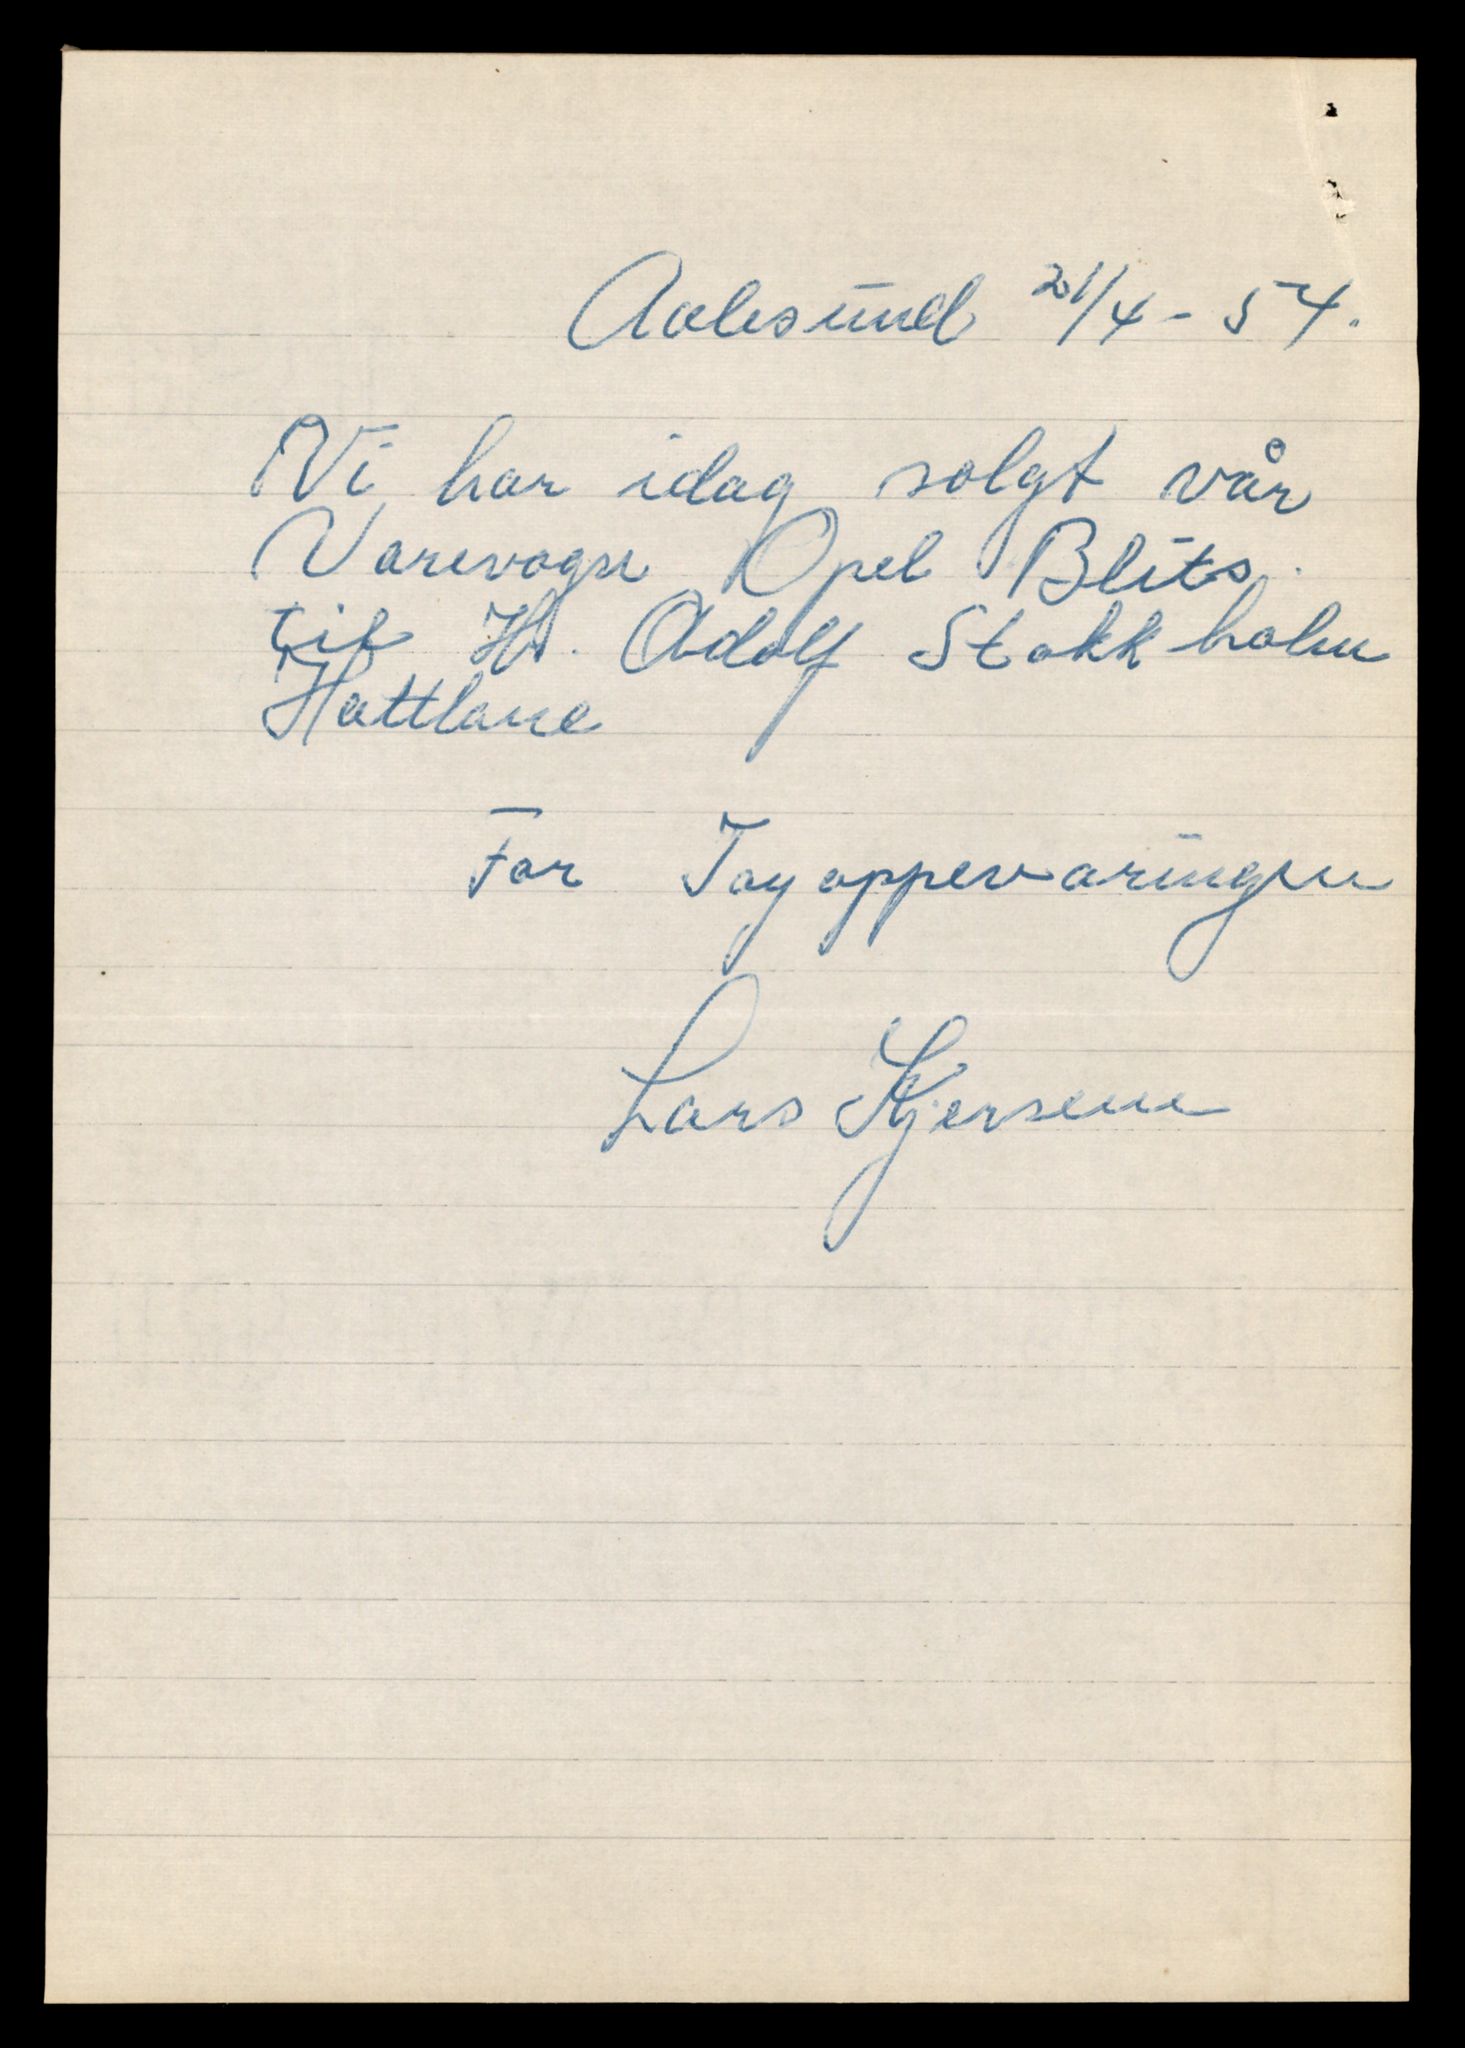 Aalesund 20/4 - 54.
Vi har idag solgt vår
Varevogn Opel Blits
til Hr. Adolf Stokkholm
Hattlane
For Tøyoppevaringen
Lars